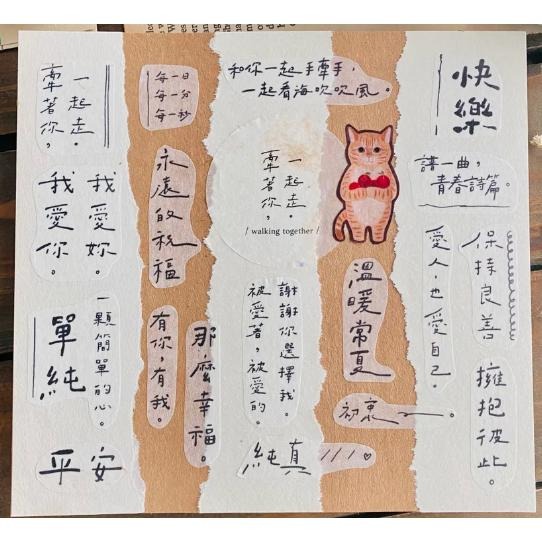 牽著你，
一起走。
每一日
每一分
每一秒
和你一起手牽手，
一起看海吹吹風。
快樂
譜一曲，
青春詩篇。
我愛你。
我愛妳。
永遠的祝福
牽著你，
一起走。
/ walking together /
愛人，也愛自己。
保持良善
擁抱彼此。
單純
一顆簡單的心。
有你，有我。
那麼幸福。
謝謝你選擇我。
被愛著，被愛的。
溫暖常夏
初衷
平安
純真